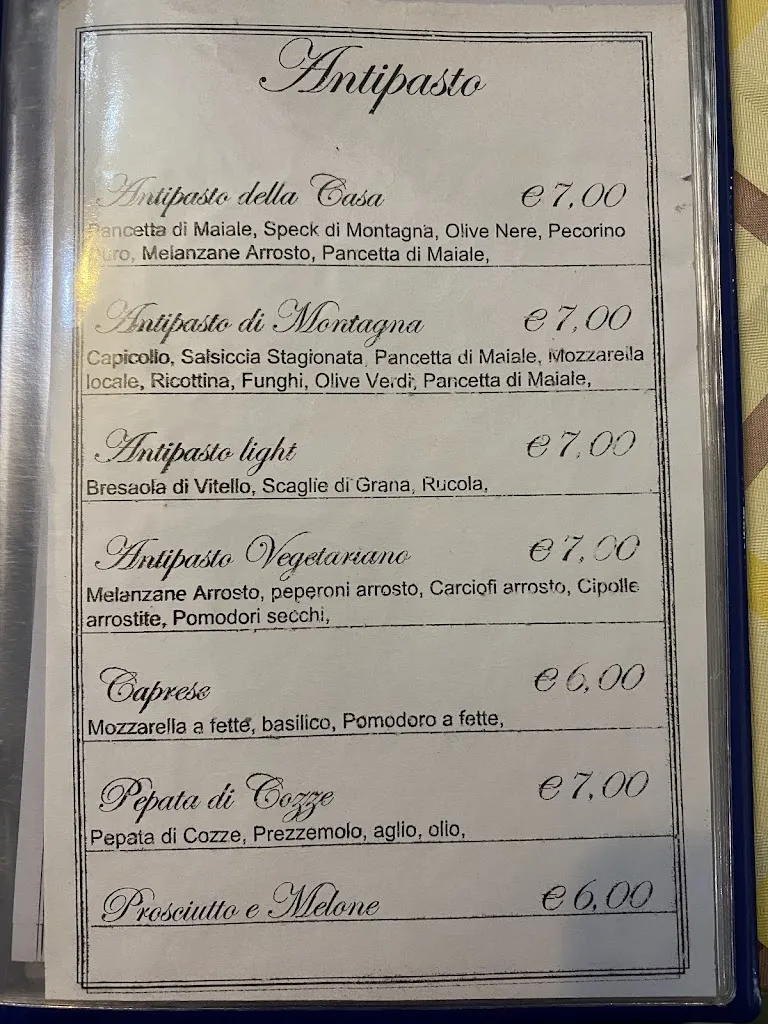 Antipasto
Antipasto della Casa € 7,00
Pancetta di Maiale, Speck di Montagna, Olive Nere, Pecorino
Melanzane Arrosto, Pancetta di Maiale,
Antipasto di Montagna € 7,00
Capicollo, Salsiccia Stagionata, Pancetta di Maiale, Mozzarella
locale, Ricottina, Funghi, Olive Verdi, Pancetta di Maiale,
Antipasto light € 7,00
Bresaola di Vitello, Scaglie di Grana, Rucola,
Antipasto Vegetariano € 7,00
Melanzane Arrosto, peperoni arrosto, Carciofi arrosto, Cipolle
arrostite, Pomodori secchi,
Caprese € 6,00
Mozzarella a fette, basilico, Pomodoro a fette,
Pepata di Cozze € 7,00
Pepata di Cozze, Prezzemolo, aglio, olio,
Prosciutto e Melone € 6,00